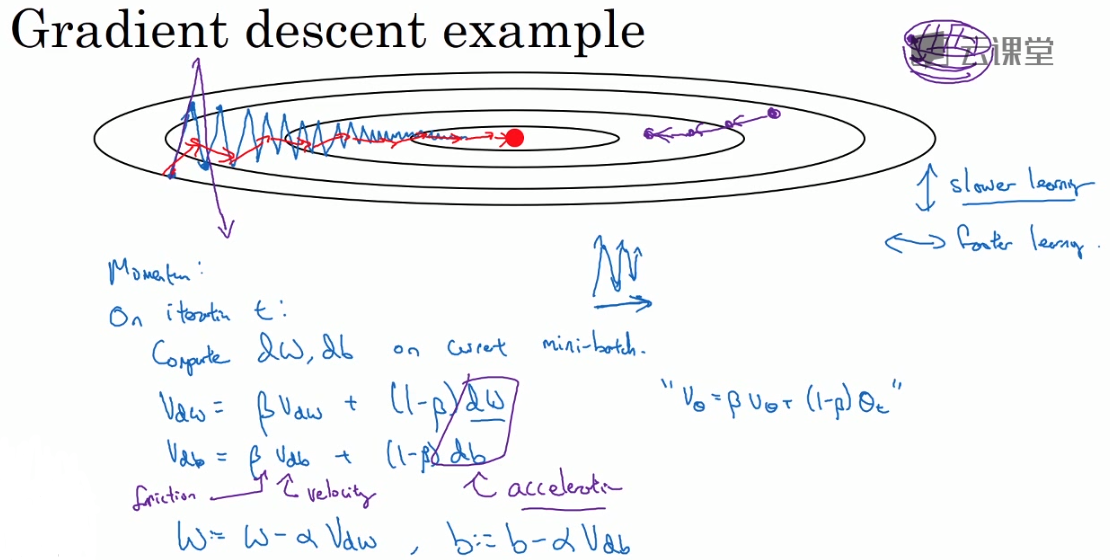 Gradient descent example
云课堂
slower learning
faster learning.
Momentum:
On iteration t:
Compute dW, db on current mini-batch.
V_dW = βV_dW + (1-β)dW
"V_θ = βV_θ + (1-β)θ_t"
V_db = βV_db + (1-β)db
friction velocity acceleration
W := W - αV_dW , b := b - αV_db